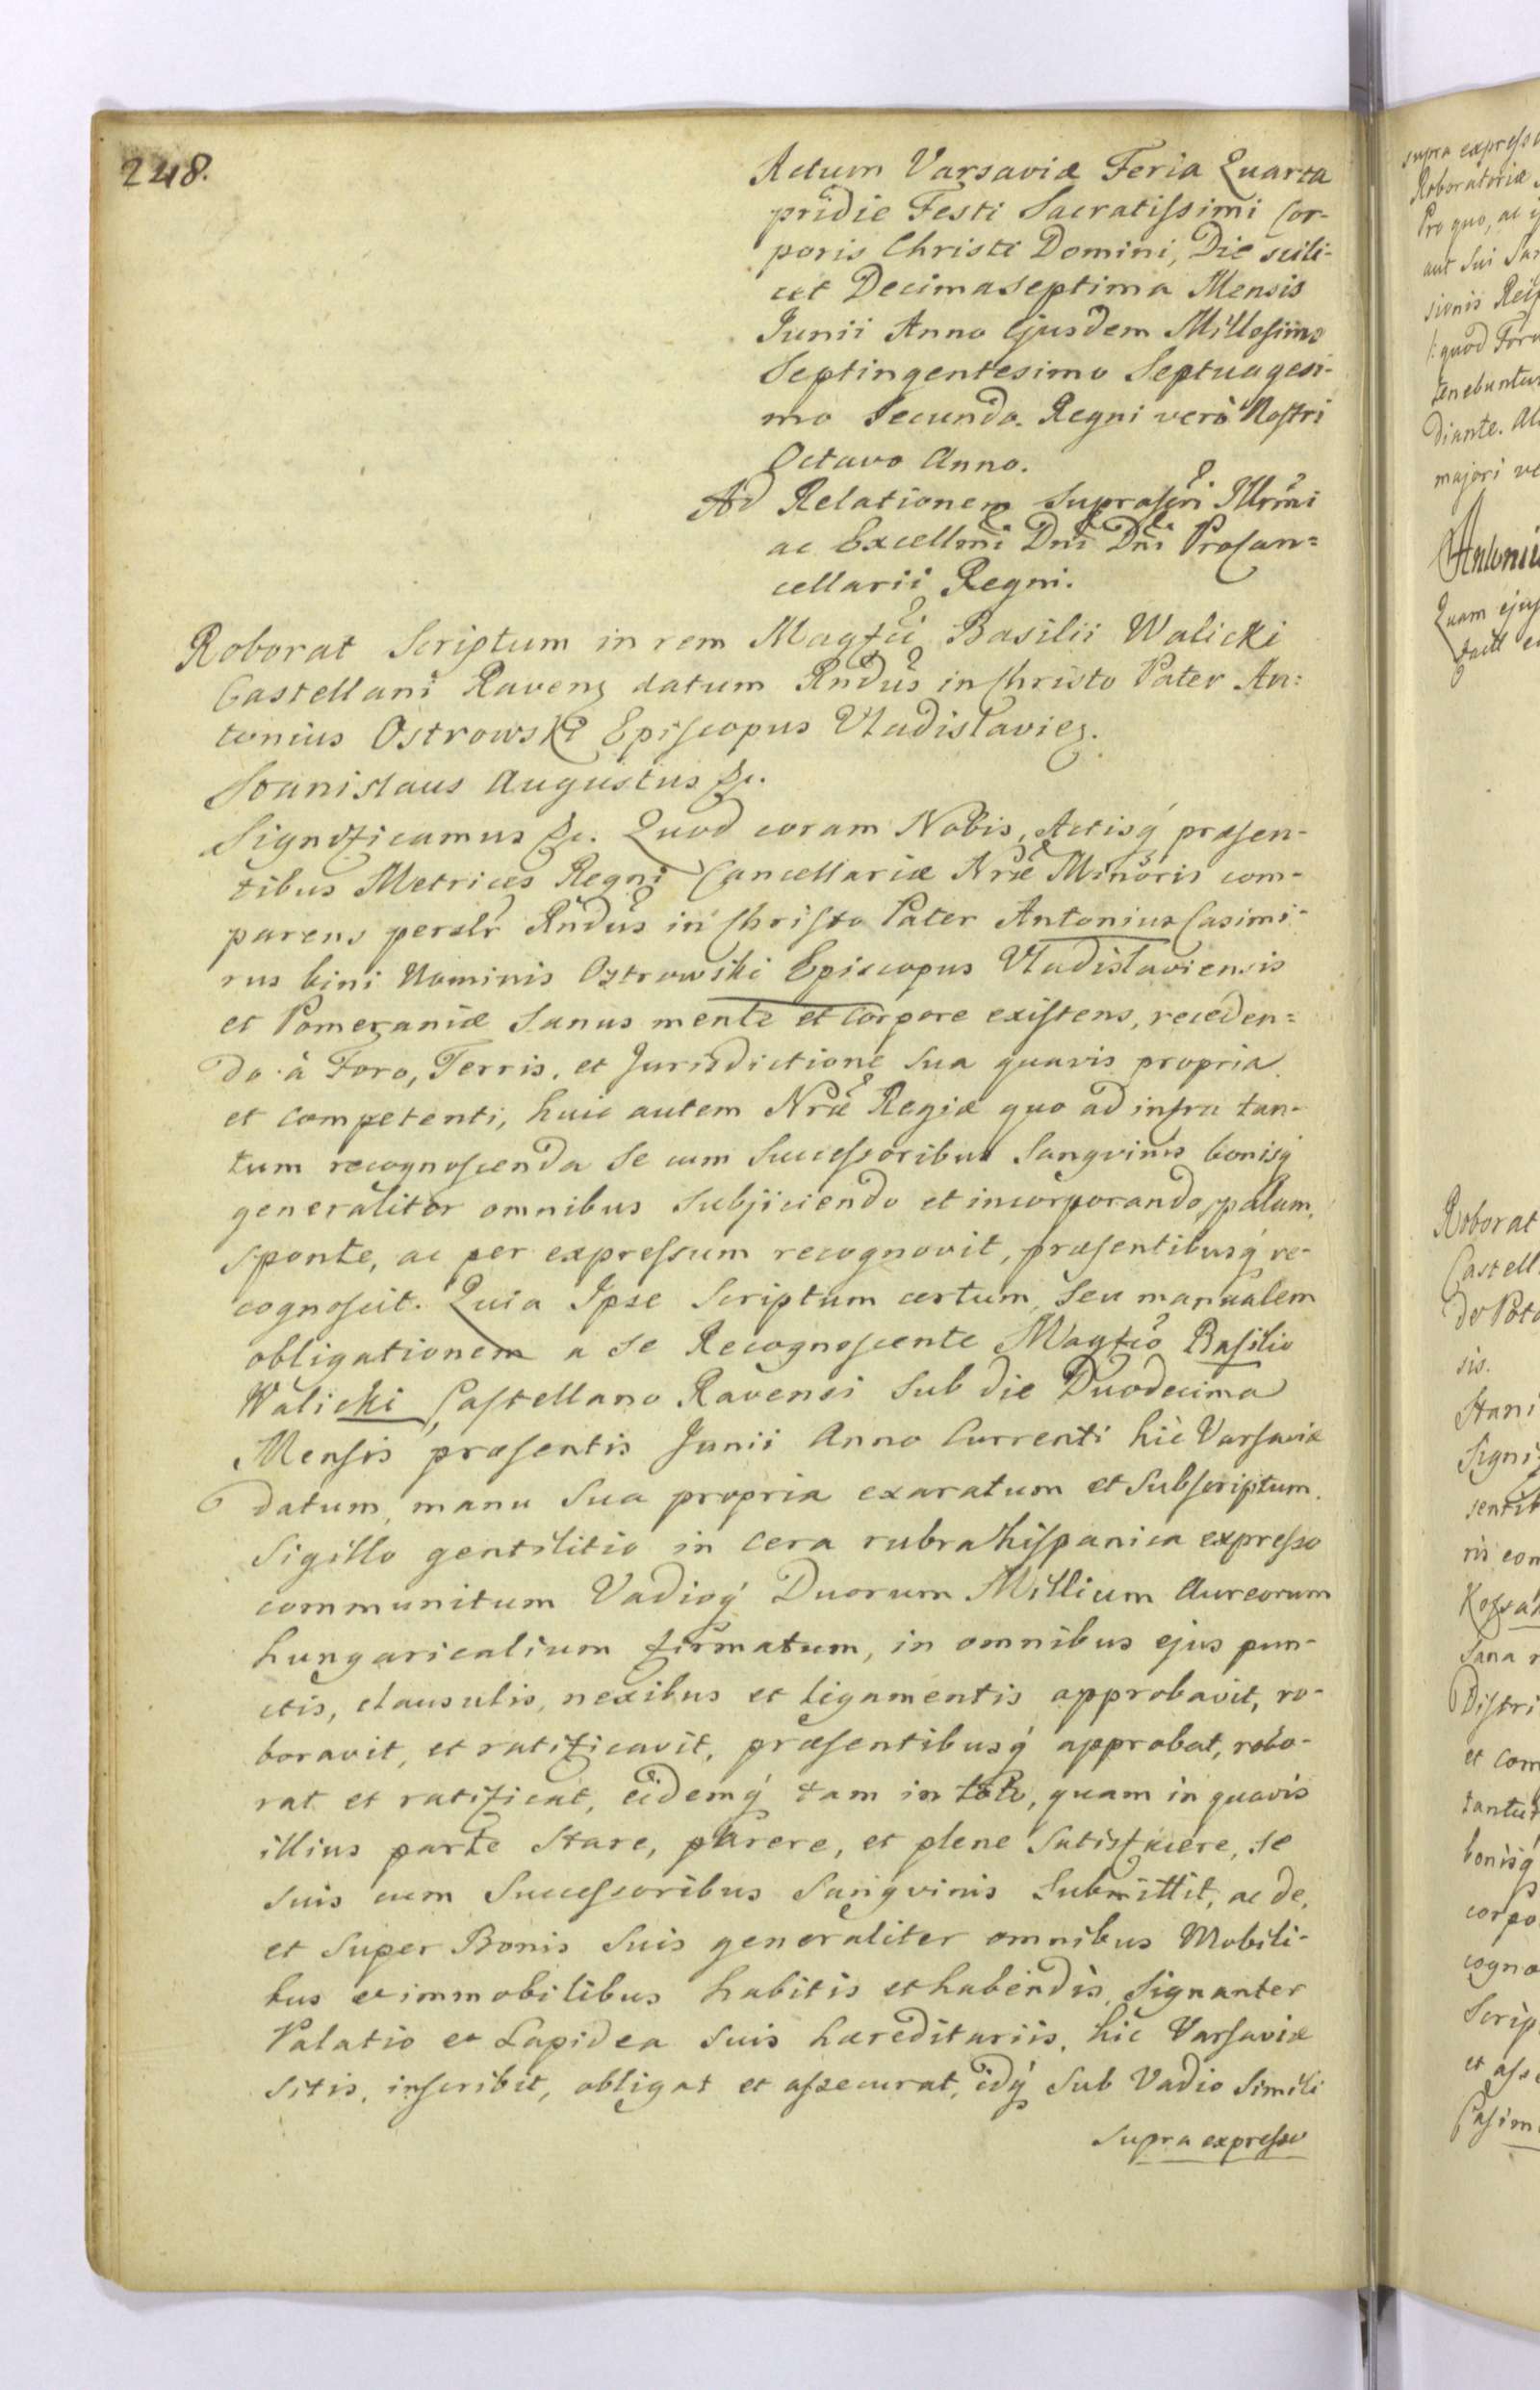 248.
Actum Varsaviæ Feria Quarta
pridie Festi Sacratissimi Cor-
poris Christi Domini, Die scili-
cet Decima Septima Mensis
Junii Anno Ejusdem Millesimo
Septingentesimo Septuagesi-
mo Secundo. Regni verò Nostri
Octavo Anno.
Ad Relationem Suprascri Illrmi
ac Excellmi Dni Dni Procan=
cellarii Regni.
Roborat Scriptum in rem Magfci Basilii Walicki
Castellani Ravenz datum Rndus in Christo Pater An=
tonius Ostrowski Episcopus Vladislaviez.
Stanislaus Augustus &c.
Significamus &c. Quod coram Nobis, Actisq́ præsen-
tibus Metrices Regni Cancellariæ Nræ Minoris com-
parens persłr Rndus in Christo Pater Antonius Casimi-
rus bini Nominis Ostrowski Episcopus Vladislaviensis
et Pomeraniæ Sanus mente et Corpore existens, receden=
do à Foro, Terris, et Jurisdictione Sua quavis propria
et competenti, huic autem Nræ Regiæ quo ad infra tan-
tum recognoscenda Se cum Successoribus Sangvinis bonisq́
generaliter omnibus Subjiciendo et incorporando, palam,
sponte, ac per expressum recognovit, præsentibusq́ re-
cognoscit. Quia Ipse Scriptum certum, Seu manualem
obligationem a Se Recognoscente Magfco Basilio
Walicki Castellano Ravensi Sub die Duodecima
Mensis præsentis Junii Anno Currenti hic Varsaviæ
datum, manu Sua propria exaratum et Subscriptum.
Sigillo gentilitio in Cera rubra hispanica expresso
communitum Vadioq́ Duorum Millium Aureorum
hungaricalium firmatum, in omnibus ejus pun-
ctis, clausulis, nexibus et ligamentis approbavit, ro-
boravit, et ratificavit, præsentibusq́ approbat, robo-
rat et ratificat, eidemq́ tam in toto, quam in quavis
illius parte Stare, parere, et plene Satisfacere, Se
Suis cum Successoribus Sangvinis Submittit, ac de,
et Super Bonis Suis generaliter omnibus Mobili-
bus et immobilibus habitis et habendis, Signanter
Palatio et Lapidea Suis hæreditariis, hic Varsaviæ
Sitis, inscribit, obligat et assecurat, idq́ Sub Vadio Simili
Supra expresso
supra expresso
Roboratoriæ
Pro quo, ac
aut Sui
sionis
quod
tenebuntur
diante.
majori
Antonius
Quam
Roborat
Castell
de
sis.
Stani
Signi
sentib
ris com
Sana
Distri
et com
tantu
bonisq́
corpo
cogno
Scrip
et asse
Casim